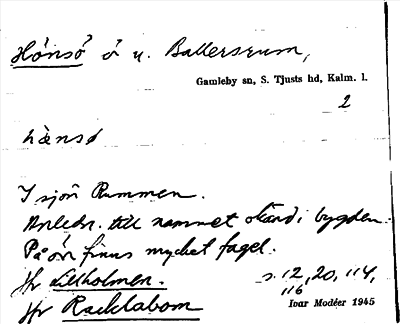 Hönsö ö u. Ballersrum,
Gamleby sn, S. Tjusts hd, Kalm. l.
2
hänsø
I sjön Rummen.
Anledn. till namnet okänd i bygden.
På ön finns mycket fågel.
Jfr Lillholmen. s. 12, 20, 114,
116
Jfr Racklabom
Ivar Modéer 1945